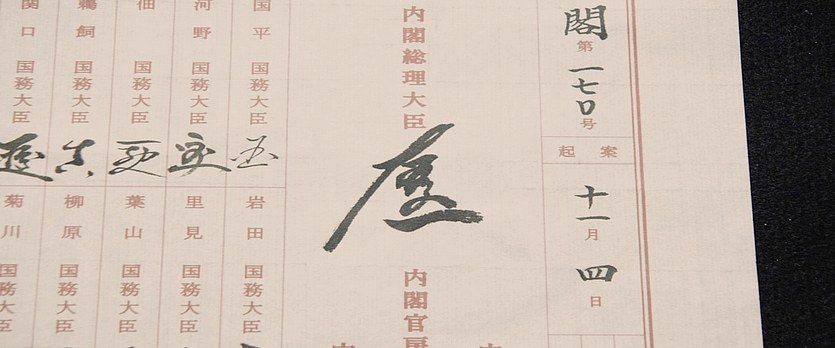 閣
第一七〇号
起案
十一月四日
内閣総理大臣
内閣官房
国平 国務大臣
河野 国務大臣
佃 国務大臣
鵜飼 国務大臣
関口 国務大臣
岩田
里見 国務大臣
葉山 国務大臣
柳原 国務大臣
菊川 国務大臣
国務大臣